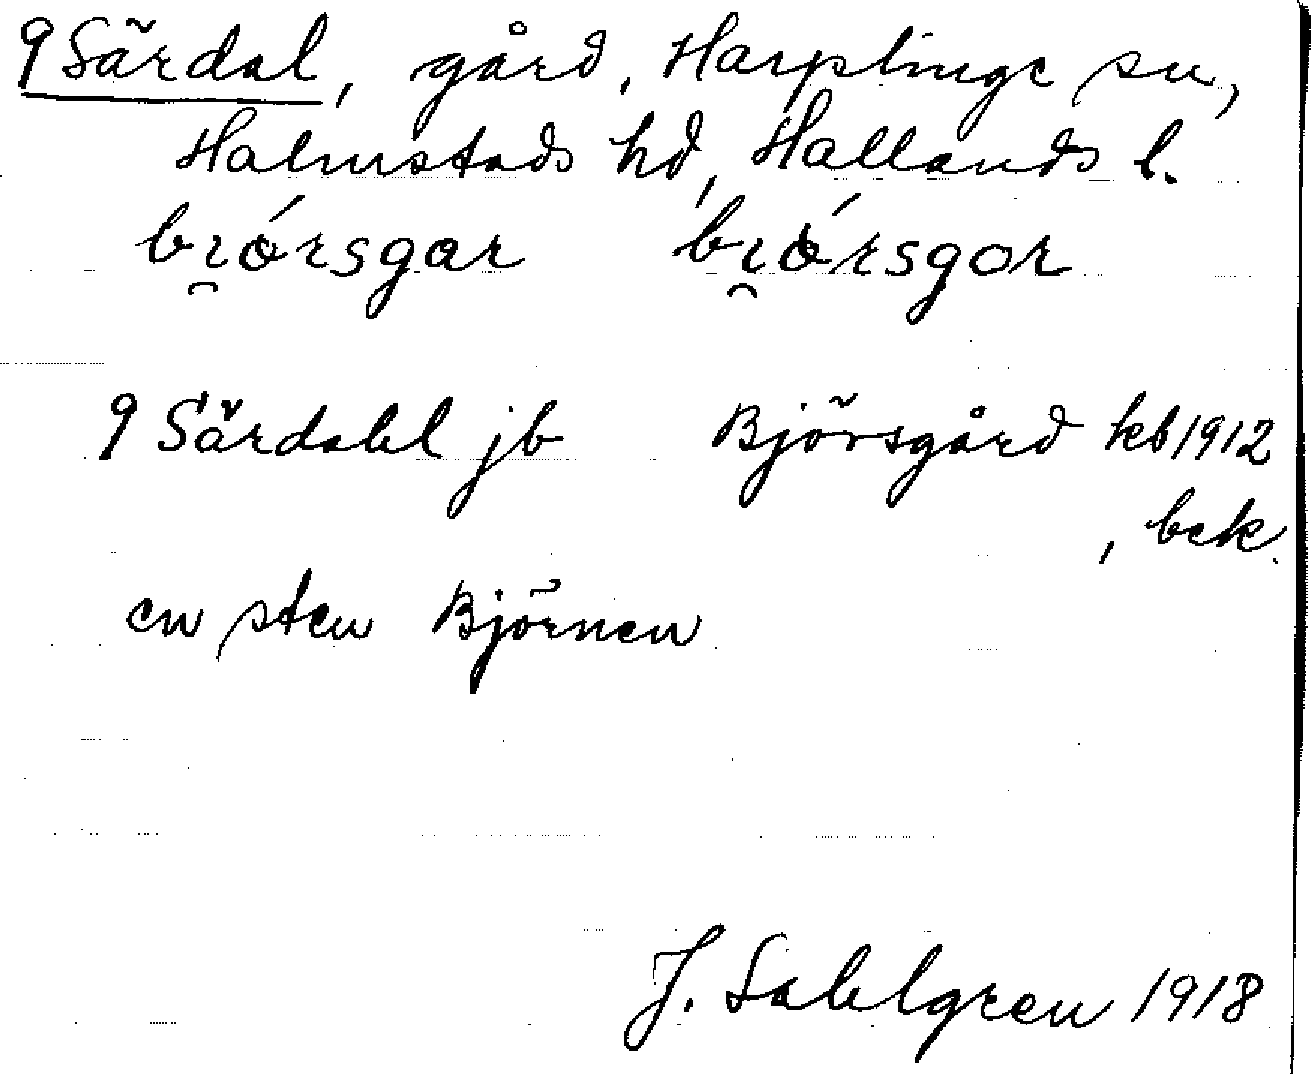 9 Särdal, gård, Harplinge sn,
Halmstads hd, Hallands l.
bı̯órsgar bı̯órsgor
9 Särdahl jb Björsgård kb 1912
, bek.
en sten Björnen
J. Sahlgren 1918